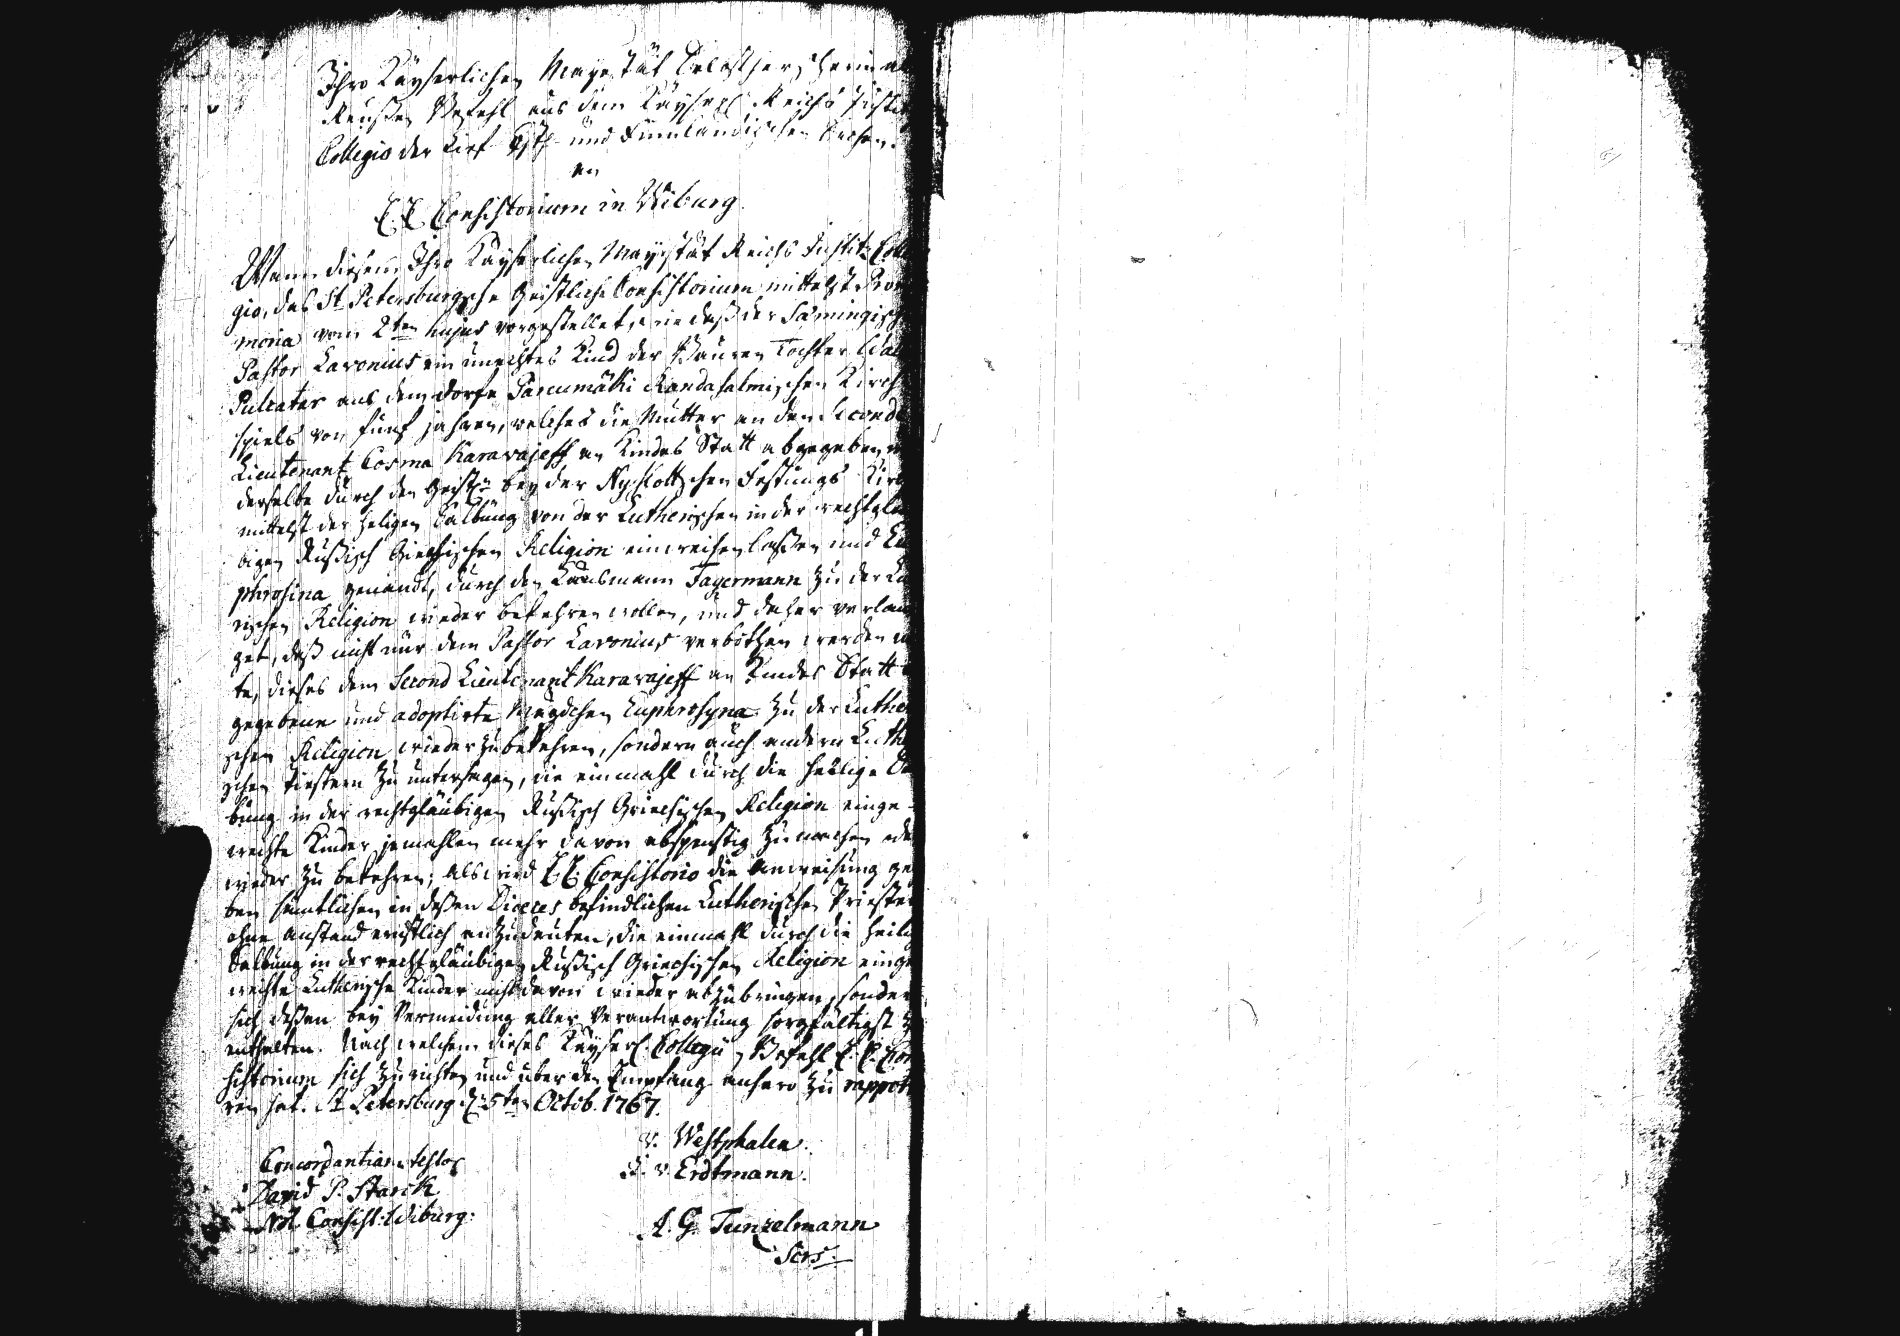 Ihro Käyserlichen Mayestät Selbstherscherin al
Reußen Befehl aus dem Käyserl. Reichs Justi
Collegio der Lief- Ehst- und Finnländischen Sachen.
an
E. E. Consistorium in Wiburg.
Wann diesem Ihro Käyserlichen Mayestät Reichs Justitz Coll
gio, das St. Petersburgsche Geistliche Consistorium mittelst Prom
moria vom 2ten hujus vorgestellet, wie daß der Sämingisch
Pastor Lavonius ein unechtes Kind der Bauren Tochter
Pulcatar aus dem Dorfe Parcumäki Randasalmischen Kirch
spiels von fünf jahren, welches die Mutter an den Second
Lieutenant Cosma Karavajeff an Kindes Statt abgegeben
derselbe durch den Geistl. bey der Nyslottschen Festungs Kirc
mittelst der heiligen Salbung von der Lutherischen in der rechtglä
bigen Rußisch Griechischen Religion einweihen laßen und Eu
phrosina genandt, durch den Landsmann Fagermann zu der Lu
rischen Religion wieder bekehren wollen, und daher verlan
get, daß nicht nur dem Pastor Lavonius verbothen werden
te, dieses dem Second Lieutenant Karavajeff an Kindes Statt
gegebene und adoptirte Mägdchen Euphrosyna zu der Luthe
schen Religion wieder zu bekehren, sondern auch andern Luthe
schen Priestern zu untersagen, die einmahl durch die heilige Sa
bung in der rechtgläubigen Rußisch Griechischen Religion einge-
weihte Kinder jemahlen mehr davon abspenstig zu machen ode
wieder zu bekehren; Als wird E. E. Consistorio die Anweisung ge
ben sämtlichen in deßen Dioeces befindlichen Lutherischen Priester
ohne Anstand ernstlich anzudeuten, die einmahl durch die heilig
Salbung in der rechtgläubigen Rußisch Griechischen Religion einge
weihte Lutherische Kinder nicht davon wieder abzubringen, sonder
sich deßen bey Vermeidung aller Verantwortung sorgfältigst z
enthalten. Nach welchem dieses Käyserl. Collegii Befehl E. E. Con
sistorium sich zu richten und über den Empfang anhero zu rappor
ren hat. St. Petersburg d. 5ten Octob. 1767.
v. Westphalen.
v. Erdtmann.
Concordantiam testor
David P. Starck
Not. Consist: Wiburg:
A. G. Tunzelmann
Secrs.